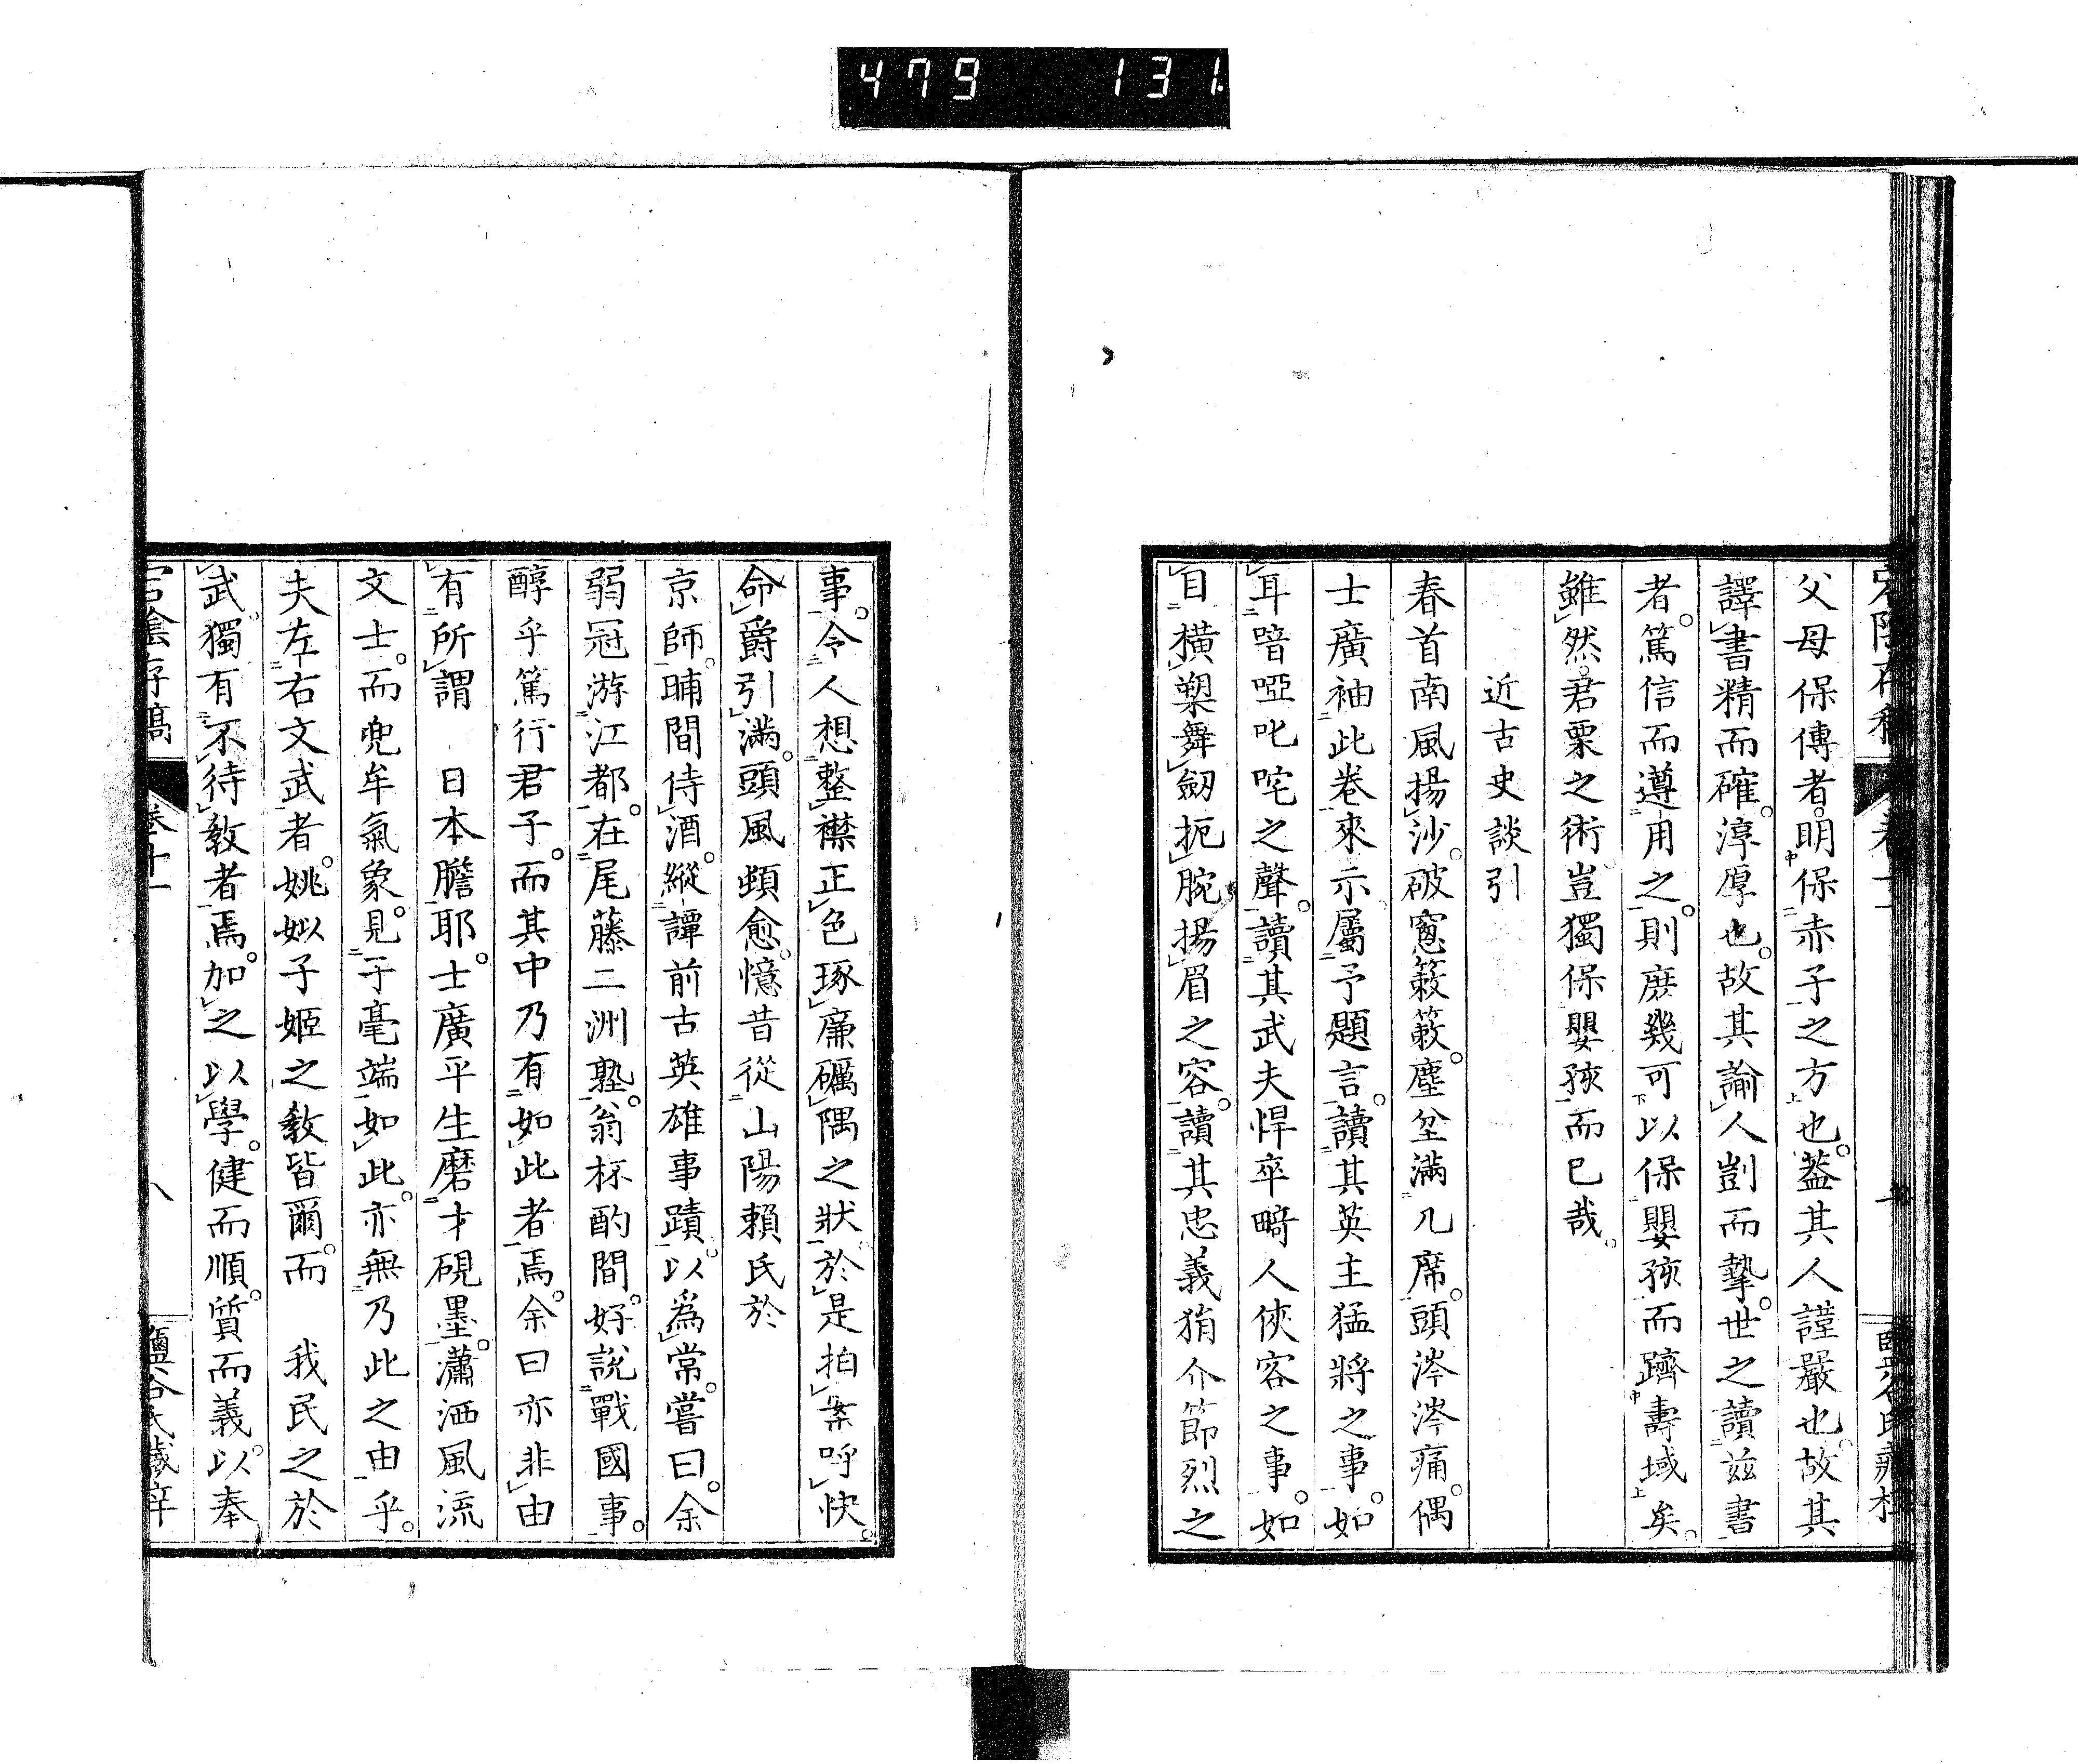 479 131
父母保傅者。明保赤子之方也。蓋其人謹嚴也。故其
譯書精而確。淳厚也。故其諭人剴而摯。世之讀茲書
者。篤信而遵用之。則庶幾可以保嬰孩而躋壽域矣。
雖然。君栗之術。豈獨保嬰孩而已哉。
近古史談引
春首南風揚沙。破窻簌簌。塵坌滿几席。頭涔涔痛。偶
士廣袖此卷來示屬予題言。讀其英主猛將之事。如
耳喑啞叱咤之聲。讀其武夫悍卒畸人俠客之事。如
目橫槊舞劔扼腕揚眉之容。讀其忠義狷介節烈之
事。令人想整襟正色琢廉礪隅之狀。於是拍案呼快。
命爵引滿。頭風頓愈。憶昔從山陽賴氏於
京師。晡間侍酒。縱譚前古英雄事蹟。以爲常。嘗曰。余
弱冠游江都。在尾藤二洲塾。翁杯酌間。好說戰國事。
醇乎篤行君子。而其中乃有如此者焉。余曰亦非由
有所謂 日本膽耶。士廣平生磨才硯墨。瀟洒風流
文士。而兜牟氣象。見于毫端如此。亦無乃此之由乎。
夫左右文武者。姚姒子姬之敎皆爾。而 我民之於
武。獨有不待敎者焉。加之以學。健而順。質而義。以奉
宕陰存稿 卷十一 八 鹽谷氏藏梓